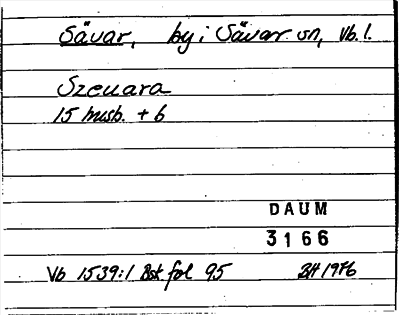 Sävar, by i Sävar sn, Vb. l.
Szeuara
15 husb. + b
DAUM
3166
Vb 1539:1 Bsk fol 95 BH 1976